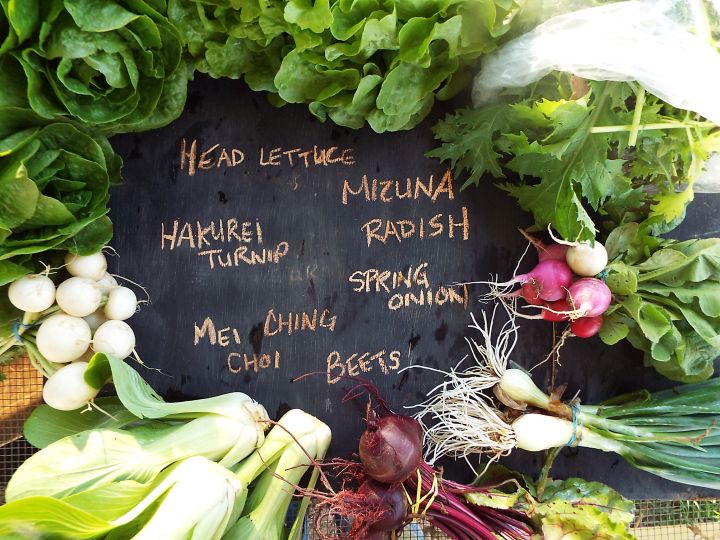 HEAD LETTUCE
MIZUNA
HAKUREI
TURNIP
RADISH
SPRING
ONION
MEI CHING
CHOI
BEETS